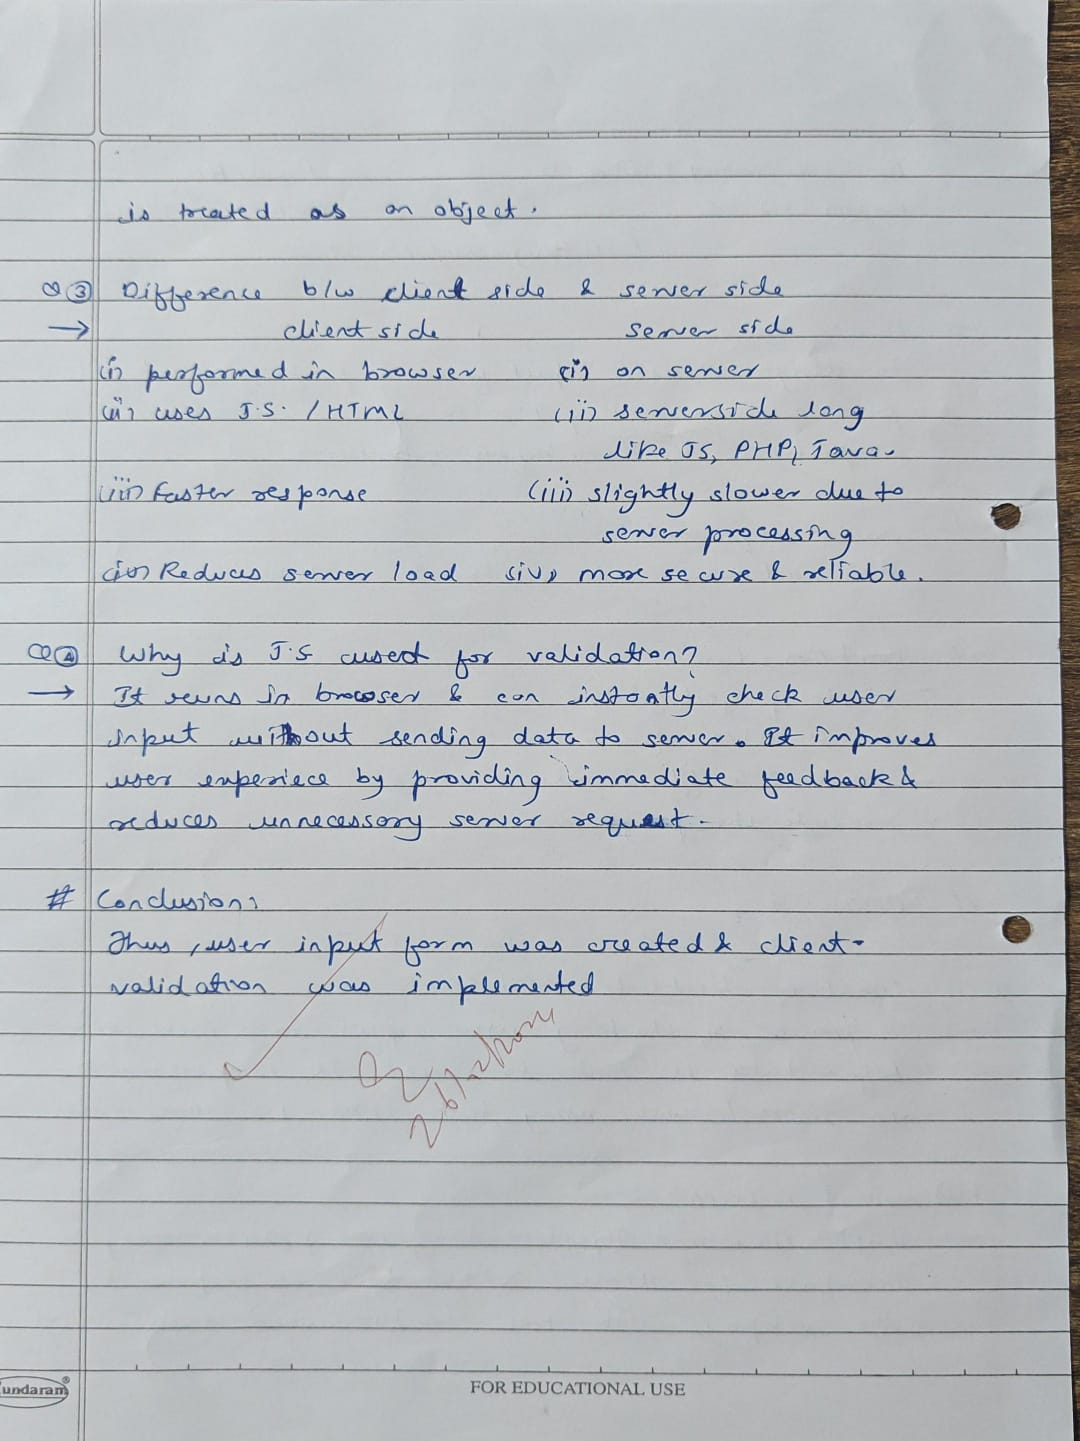 is treated as an object.
Q ③ Difference b/w client side & server side
→ client side server side
(i) performed in browser (i) on server
(ii) uses J.S. / HTML (ii) serverside lang
like JS, PHP, Java.
(iii) Faster response (iii) slightly slower due to
server processing
(iv) Reduces server load (iv) more secure & reliable.
Q ④ Why is J.S used for validation?
→ It runs in browser & can instantly check user
input without sending data to server. It improves
user experiece by providing immediate feedback &
reduces unnecessary server request.
# Conclusion:
Thus, user input form was created & client-
validation was implemented
undaram®
FOR EDUCATIONAL USE